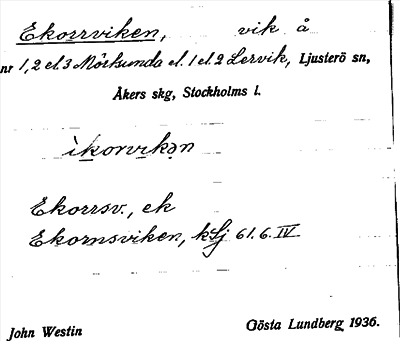 Ekorrviken, vik å
nr 1, 2 el. 3 Mörtsunda el. 1 el. 2 Lervik, Ljusterö sn,
Åkers skg, Stockholms l.
ìkorvikən
Ekorrsv., ek
Ekornsviken, kSj 61.6.IV
John Westin
Gösta Lundberg 1936.